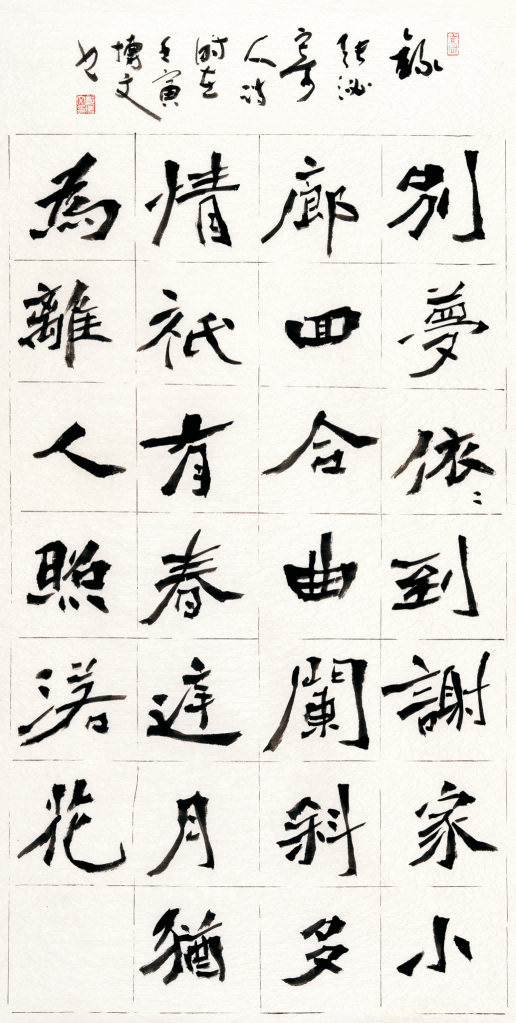 錄
張泌
寄
人詩
時在
壬寅
博文
別夢依〻到謝家小
廊回合曲闌斜多
情祇有春庭月猶
為離人照落花